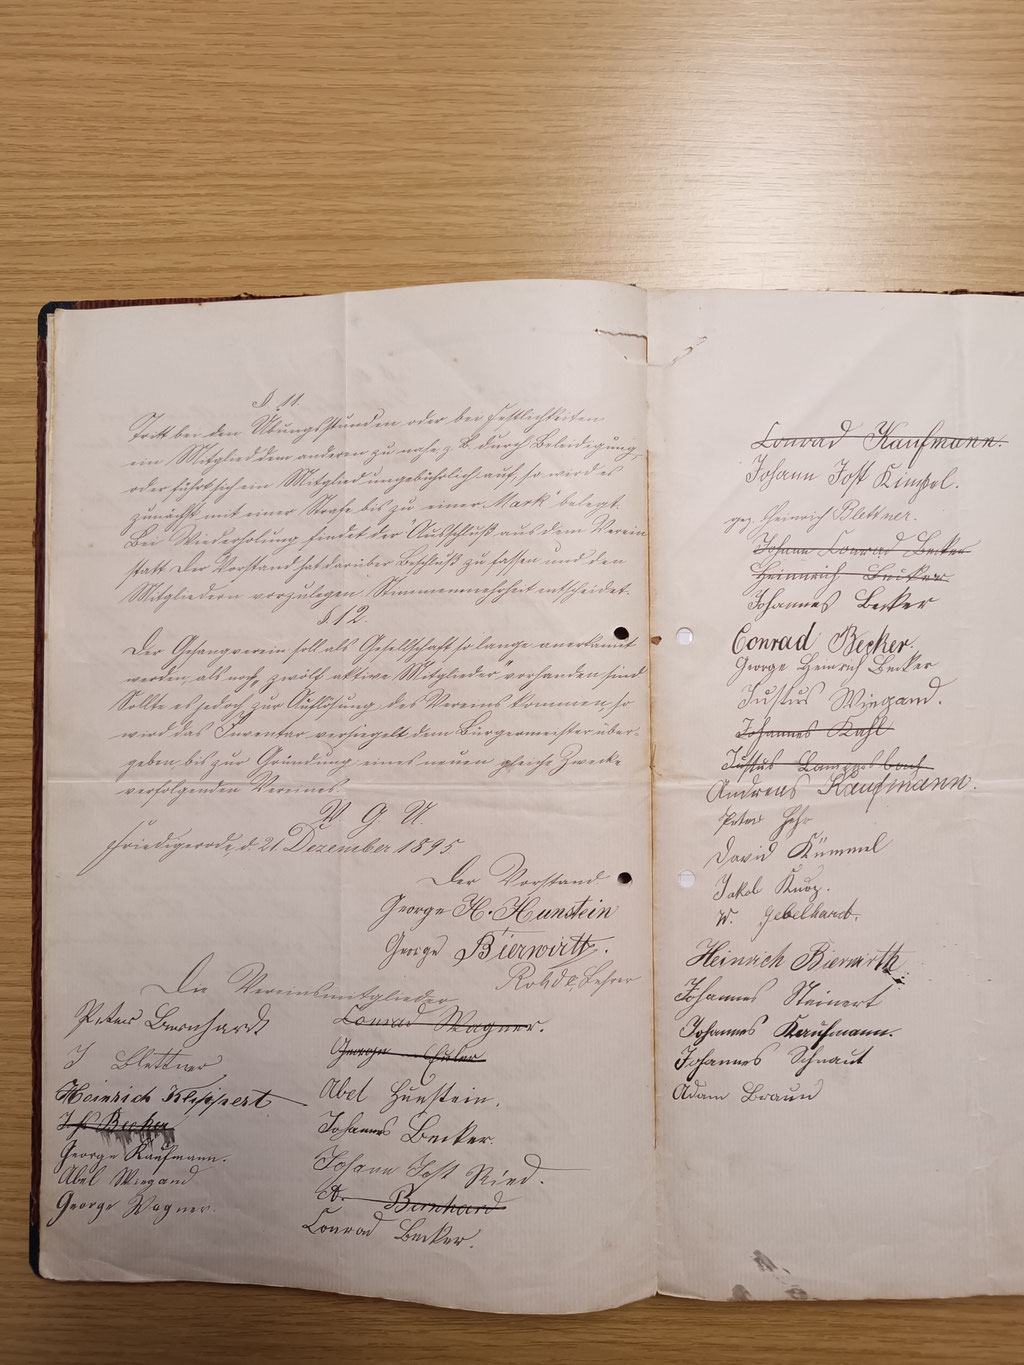 §. 11.
Tritt bei den Übungsstunden oder bei Festlichkeiten
ein Mitglied dem anderen zu nahe, z. B. durch Beleidigung,
oder führt sich ein Mitglied ungebührlich auf, so wird es
zunächst mit einer Strafe bis zu „einer Mark" belegt.
Bei Wiederholung findet der Ausschluß aus dem Verein
statt. Der Vorstand hat darüber Beschluß zu fassen und den
Mitgliedern vorzulegen. Stimmenmehrheit entscheidet.
§. 12.
Der Gesangverein soll als Gesellschaft so lange anerkannt
werden, als noch „zwölf aktive Mitglieder" vorhanden sind
Sollte es jedoch zur Auflösung des Vereins kommen, so
wird das Inventar versiegelt dem Bürgermeister über-
geben bis zur Gründung eines neuen gleiche Zwecke
verfolgenden Vereines.
V. G. U.
Friedigerode, d. 21. Dezember 1895
Der Vorstand
George H. Hunstein
George Bierwirth.
Rohde, Lehrer
Die Vereinsmitglieder
Peter Bernhardt
J Blettner
Heinrich Kleppert
Becker
George Kaufmann.
Abel Wiegand
George Wagner.
Conrad Wagner.
George
Abel Hunstein.
Johannes Becker.
Johann Jost Ried.
A. Bernhard
Conrad Becker.
Conrad Kaufmann.
Johann Jost Kimpel.
gez. Heinrich Blettner.
Johann Conrad Becker
Heinrich Becker
Johannes Becker
Conrad Becker.
George Heinrich Becker
Justus Wiegand.
Johannes Kahl
Justus
Andreas Kaufmann.
Peter Hehr
David Kümmel
Jakob Kurz.
W. Gebelhardt.
Heinrich Bierwirth
Johannes Steinert
Johannes Kaufmann.
Johannes Schnaut
Adam Braun